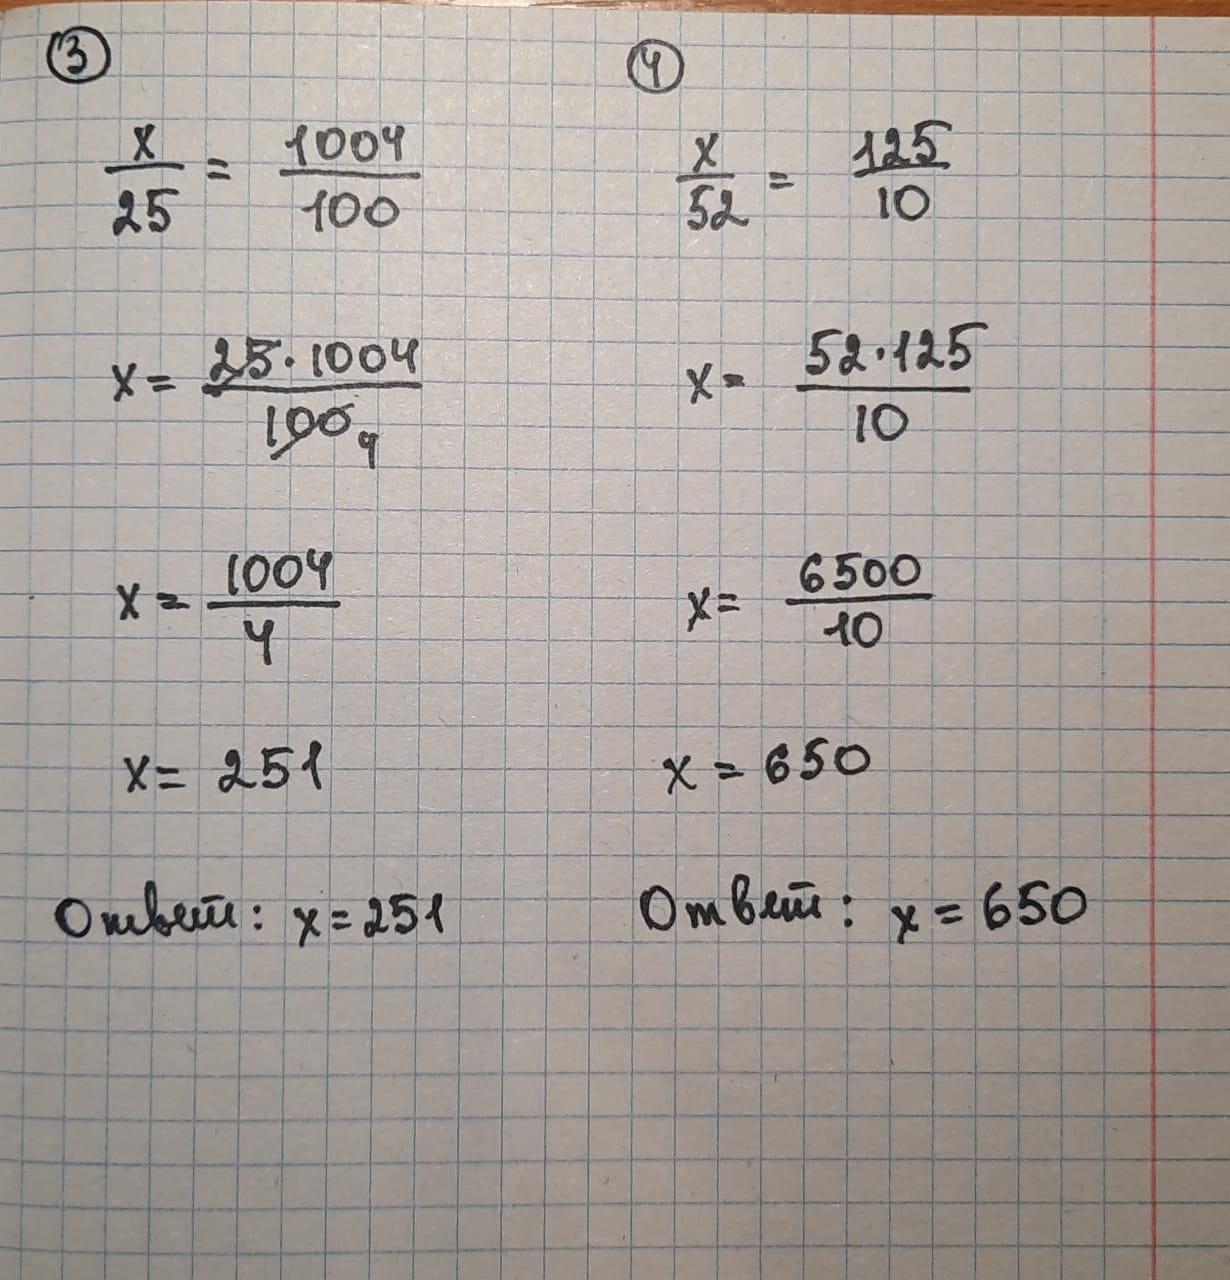 ③
x/25 = 1004/100
x = 25·1004/100 4
x = 1004/4
x = 251
Ответ: x = 251
④
x/52 = 125/10
x = 52·125/10
x = 6500/10
x = 650
Ответ: x = 650